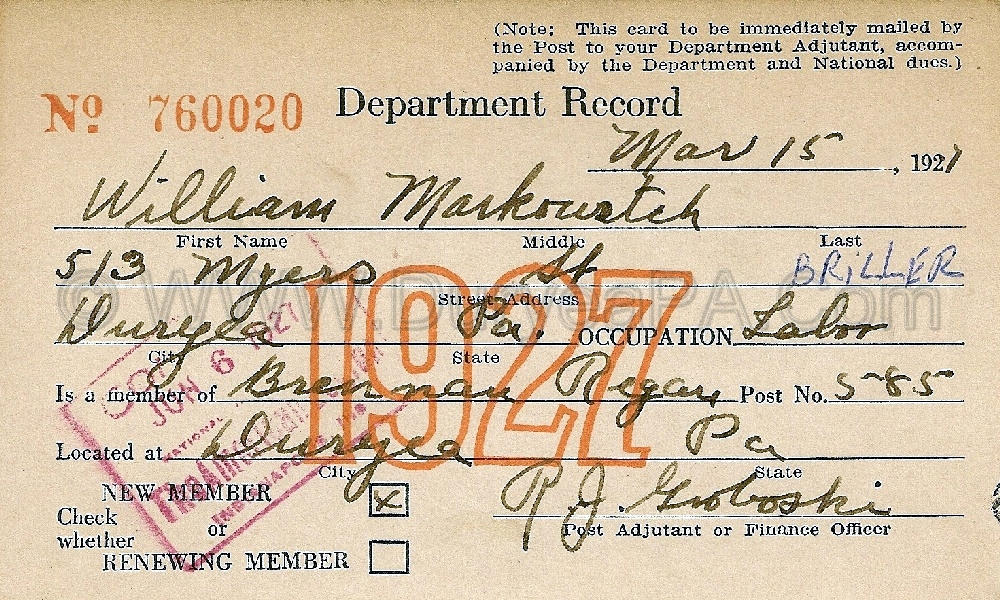 (Note: This card to be immediately mailed by
the Post to your Department Adjutant, accom-
panied by the Department and National dues.)
No 760020 Department Record
Mar 15, 1927
William Markowatch
First Name Middle Last
513 Myers St BRILLER
© WWW.DuryeaPA.Com
Street Address
Duryea Pa. OCCUPATION Labor
City State
1927
JUN 6 1927
Is a member of Brennan Regan Post No. 585
NATIONAL
Located at Duryea Pa
City State
NEW MEMBER x R. J. Groboski
Check
whether or Post Adjutant or Finance Officer
RENEWING MEMBER